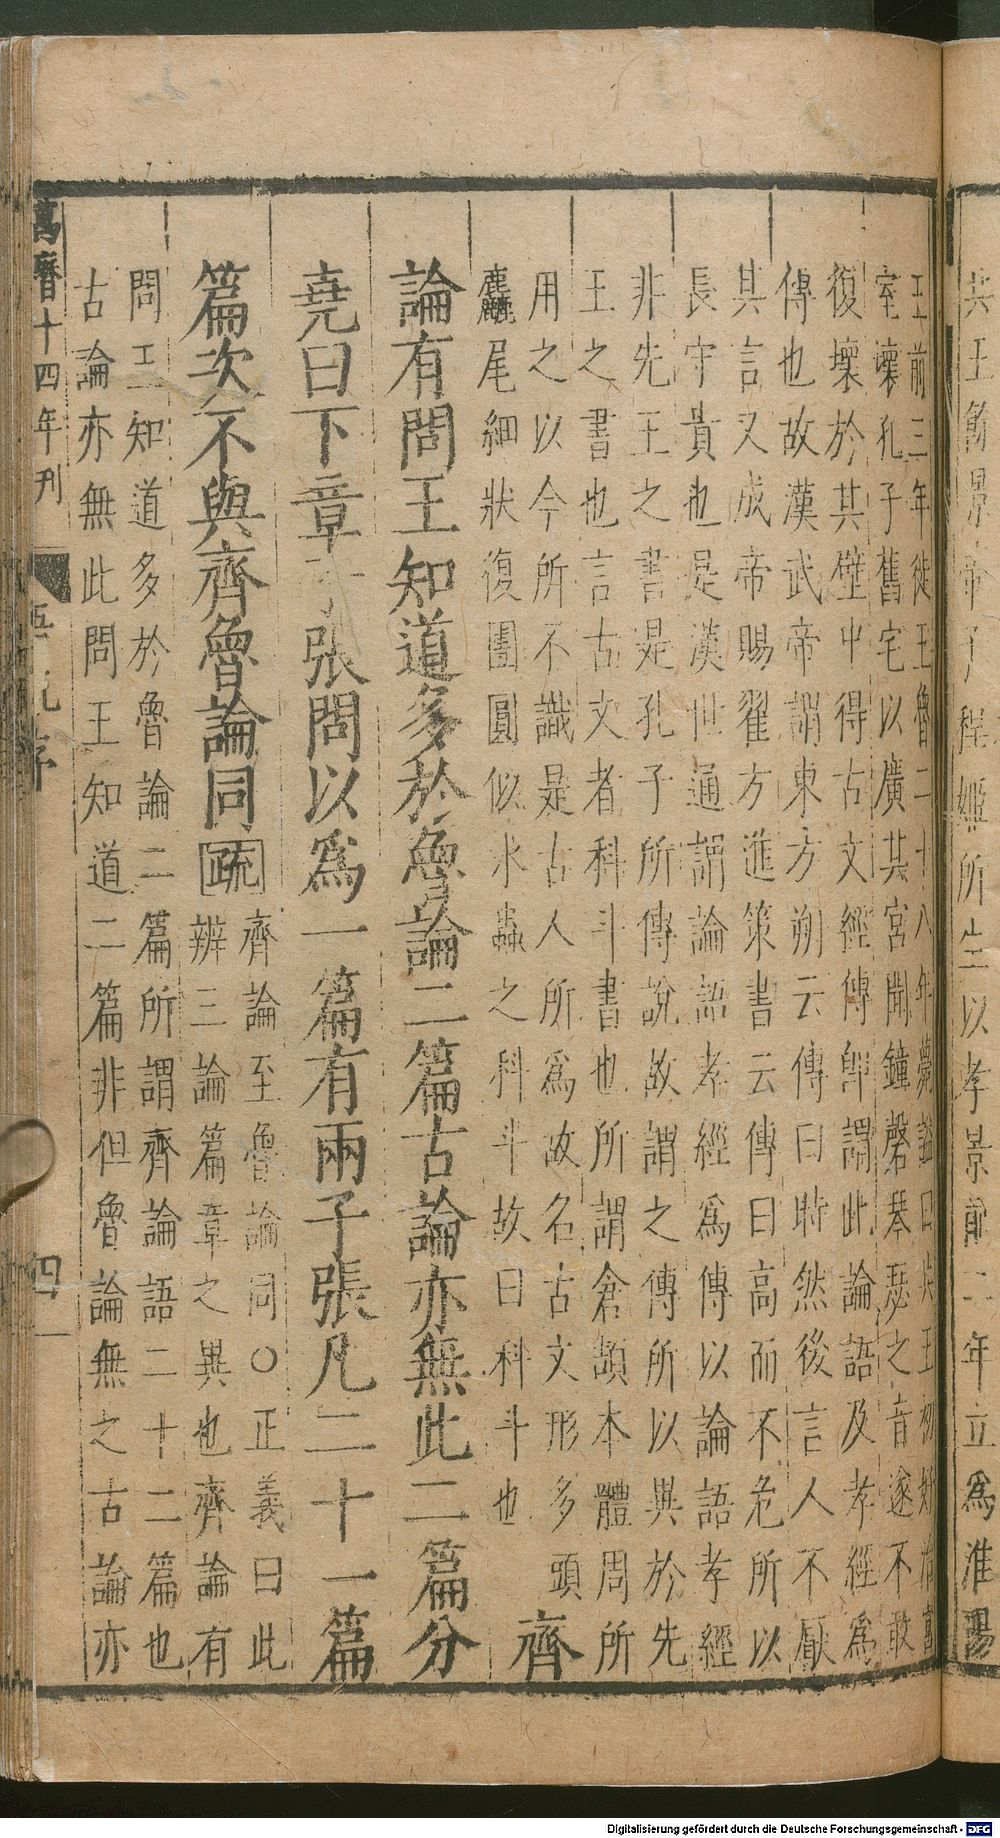 共王餘景帝子程姬所生以孝景前二年立爲淮陽
王前三年徙王魯二十八年薨諡曰共王初好治宮
室壞孔子舊宅以廣其宮聞鐘磬琴瑟之音遂不敢
復壞於其壁中得古文經傳即謂此論語及孝經爲
傳也故漢武帝謂東方朔云傳曰時然後言人不厭
其言又成帝賜翟方進策書云傳曰高而不危所以
長守貴也是漢世通謂論語孝經爲傳以論語孝經
非先王之書是孔子所傳說故謂之傳所以異於先
王之書也言古文者科斗書也所謂倉頡本體周所
用之以今所不識是古人所爲故名古文形多頭
麤尾細狀復團圓似水蟲之科斗故曰科斗也
齊
論有問王知道多於魯論二篇古論亦無此二篇分
堯曰下章子張問以爲一篇有兩子張凡二十一篇
篇次不與齊魯論同疏
齊論至魯論同○正義曰此
辨三論篇章之異也齊論有
問王知道多於魯論二篇所謂齊論語二十二篇也
古論亦無此問王知道二篇非但魯論無之古論亦
萬曆十四年刊
序
四
Digitalisierung gefördert durch die Deutsche Forschungsgemeinschaft - DFG